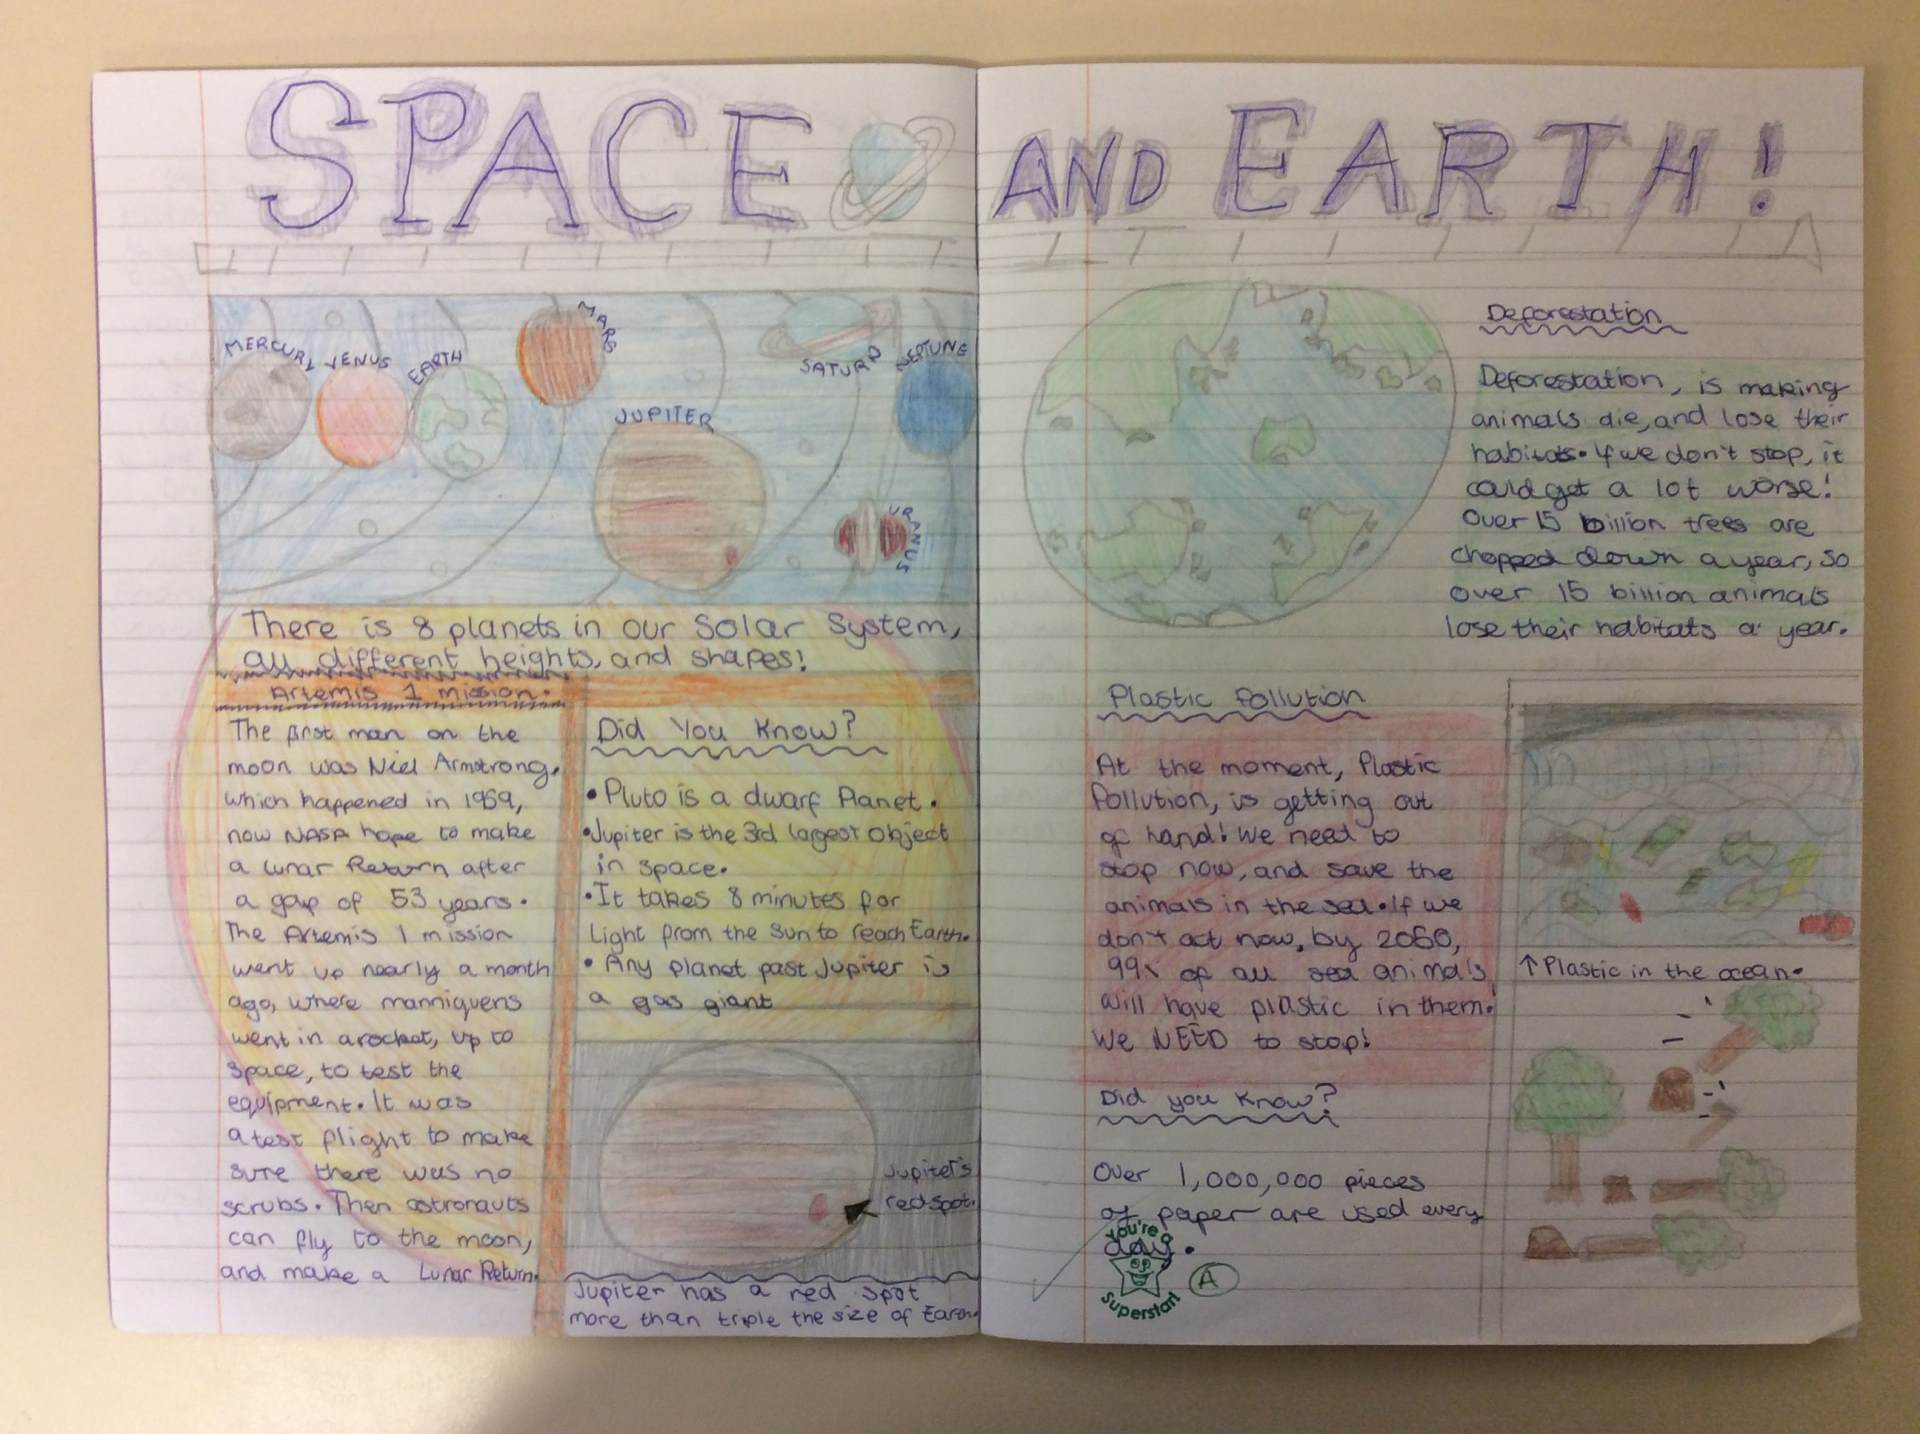 SPACE AND EARTH!
MERCURY
VENUS
EARTH
MARS
JUPITER
SATURN
NEPTUNE
URANUS
There is 8 planets in our Solar System,
all different heights, and shapes!
Artemis 1 mission.
The first man on the
moon was Niel Armstrong,
which happened in 1969,
now NASA hope to make
a lunar Return after
a gap of 53 years.
The Artemis 1 mission
went up nearly a month
ago, where manniquens
went in a rocket, up to
space, to test the
equipment. It was
a test flight to make
sure there was no
scrubs. Then astronauts
can fly to the moon,
and make a Lunar Return.
Did You Know?
• Pluto is a dwarf Planet.
• Jupiter is the 3rd largest object
in space.
• It takes 8 minutes for
Light from the Sun to reach Earth.
• Any planet past Jupiter is
a gas giant
Jupiter's
red spot.
Jupiter has a red spot
more than triple the size of Earth.
Deforestation
Deforestation, is making
animals die, and lose their
habitats. If we don't stop, it
could get a lot worse!
Over 15 billion trees are
chopped down a year, so
over 15 billion animals
lose their habitats a year.
Plastic Pollution
At the moment, Plastic
Pollution, is getting out
of hand! We need to
stop now, and save the
animals in the sea. If we
don't act now, by 2060,
99% of all sea animals
will have plastic in them!
We NEED to stop!
↑ Plastic in the ocean.
Did you Know?
Over 1,000,000 pieces
of paper are used every
day.
You're a
Superstar!
A